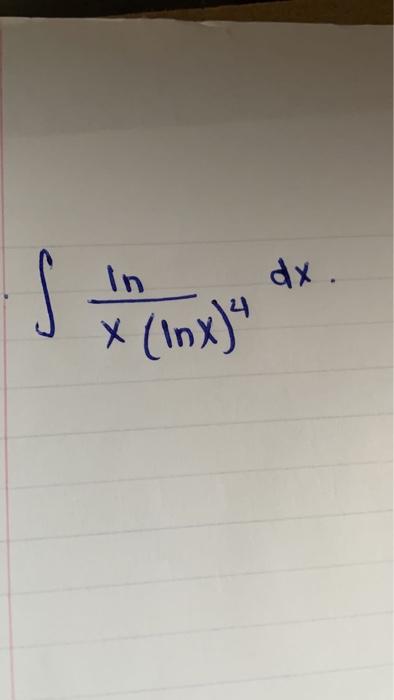 ∫ ln / x (lnx)⁴ dx.